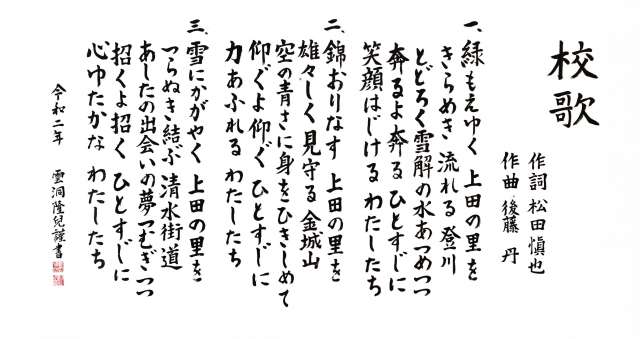 校歌
作詞 松田愼也
作曲 後藤 丹
一、緑もえゆく 上田の里を
きらめき 流れる 登川
とどろく雪解の水あつめつつ
奔るよ奔る ひとすじに
笑顔はじける わたしたち
二、錦おりなす 上田の里を
雄々しく 見守る 金城山
空の青さに身をひきしめて
仰ぐよ仰ぐ ひとすじに
力あふれる わたしたち
三、雪にかがやく 上田の里を
つらぬき結ぶ 清水街道
あしたの出会いの夢つむぎつつ
招くよ招く ひとすじに
心ゆたかな わたしたち
令和二年 雲洞隆兒謹書